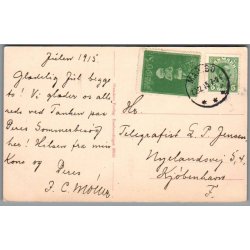 Julen 1915.
Glædelig Jul begge
to! Vi glæder os alle
rede ved Tanken paa
Peres Sommerbesøg
her! Hilsen fra min
Kone og Peres
J. C. Møller
Hr.
Telegrafist E. P. Jensen
Nyelandsvej 5, 4.
Kjøbenhavn
F.